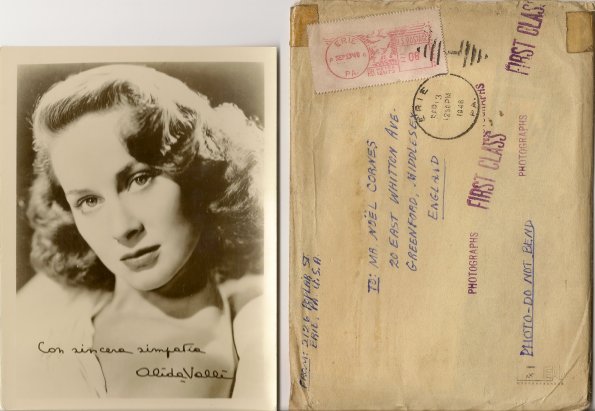 Con sincera simpatia
Alida Valli
ERIE
SEP 13 '48
PA.
ERIE
SEP 13
12 30 PM
1948
PA.
FIRST CLASS
PHOTOGRAPHS
FIRST CLASS
PHOTOGRAPHS
TO: MR NOËL CORNES
20 EAST WHITTON AVE-
GREENFORD, MIDDLESEX
ENGLAND
PHOTOGRAPHS
PHOTO-DO NOT BEND
FROM: 2126 ST
ERIE, PA U.S.A.